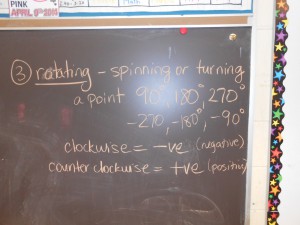 PINK
APRIL 9th 2014
③ rotating - spinning or turning
a point 90°, 180°, 270°
-270°, -180°, -90°
clockwise = -ve (negative)
counter clockwise = +ve (positive)